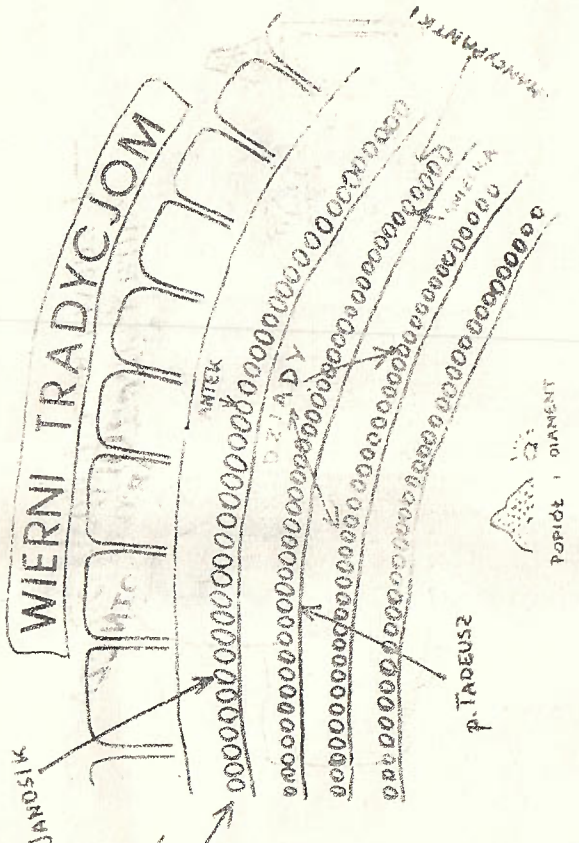 WIERNI TRADYCJOM
JANOSIK
ANTEK
DZIADY
p. TADEUSZ
POPIÓŁ I DIAMENT